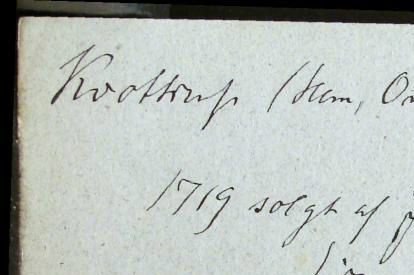 Kvottrup (Hem, On
1719 solgt af